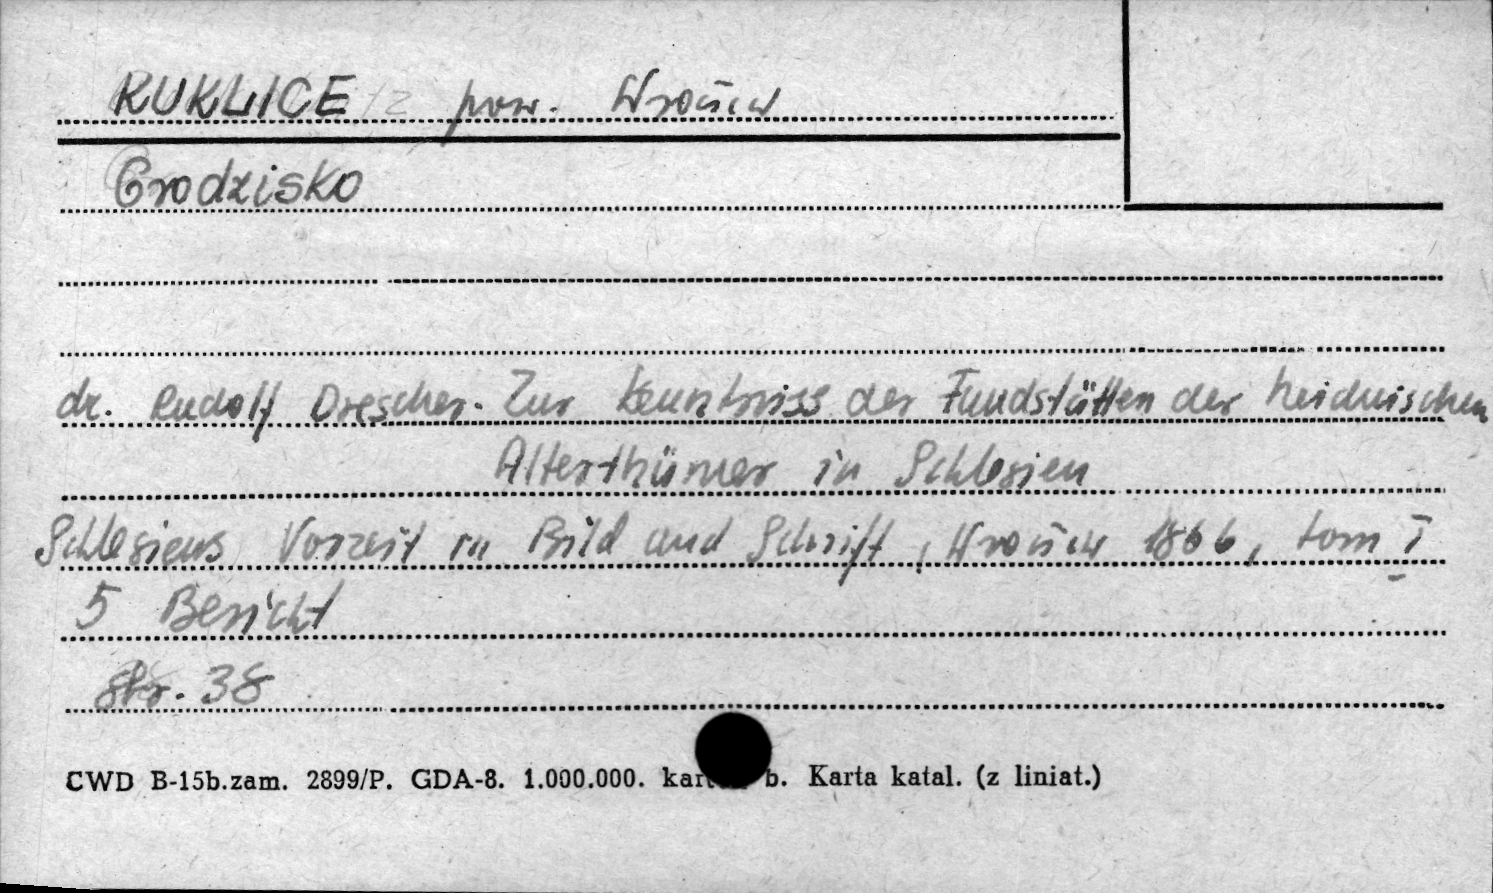 KUKLICE pow. Wrocław
Grodzisko
dr. Rudolf Drescher. Zur Kenntniss der Fundstätten der heidnischen
Alterthümer in Schlesien
Schlesiens Vorzeit in Bild und Schrift, Wrocław 1866, tom I
5 Bericht
str. 38
CWD B-15b.zam. 2899/P. GDA-8. 1.000.000. b. Karta katal. (z liniat.)